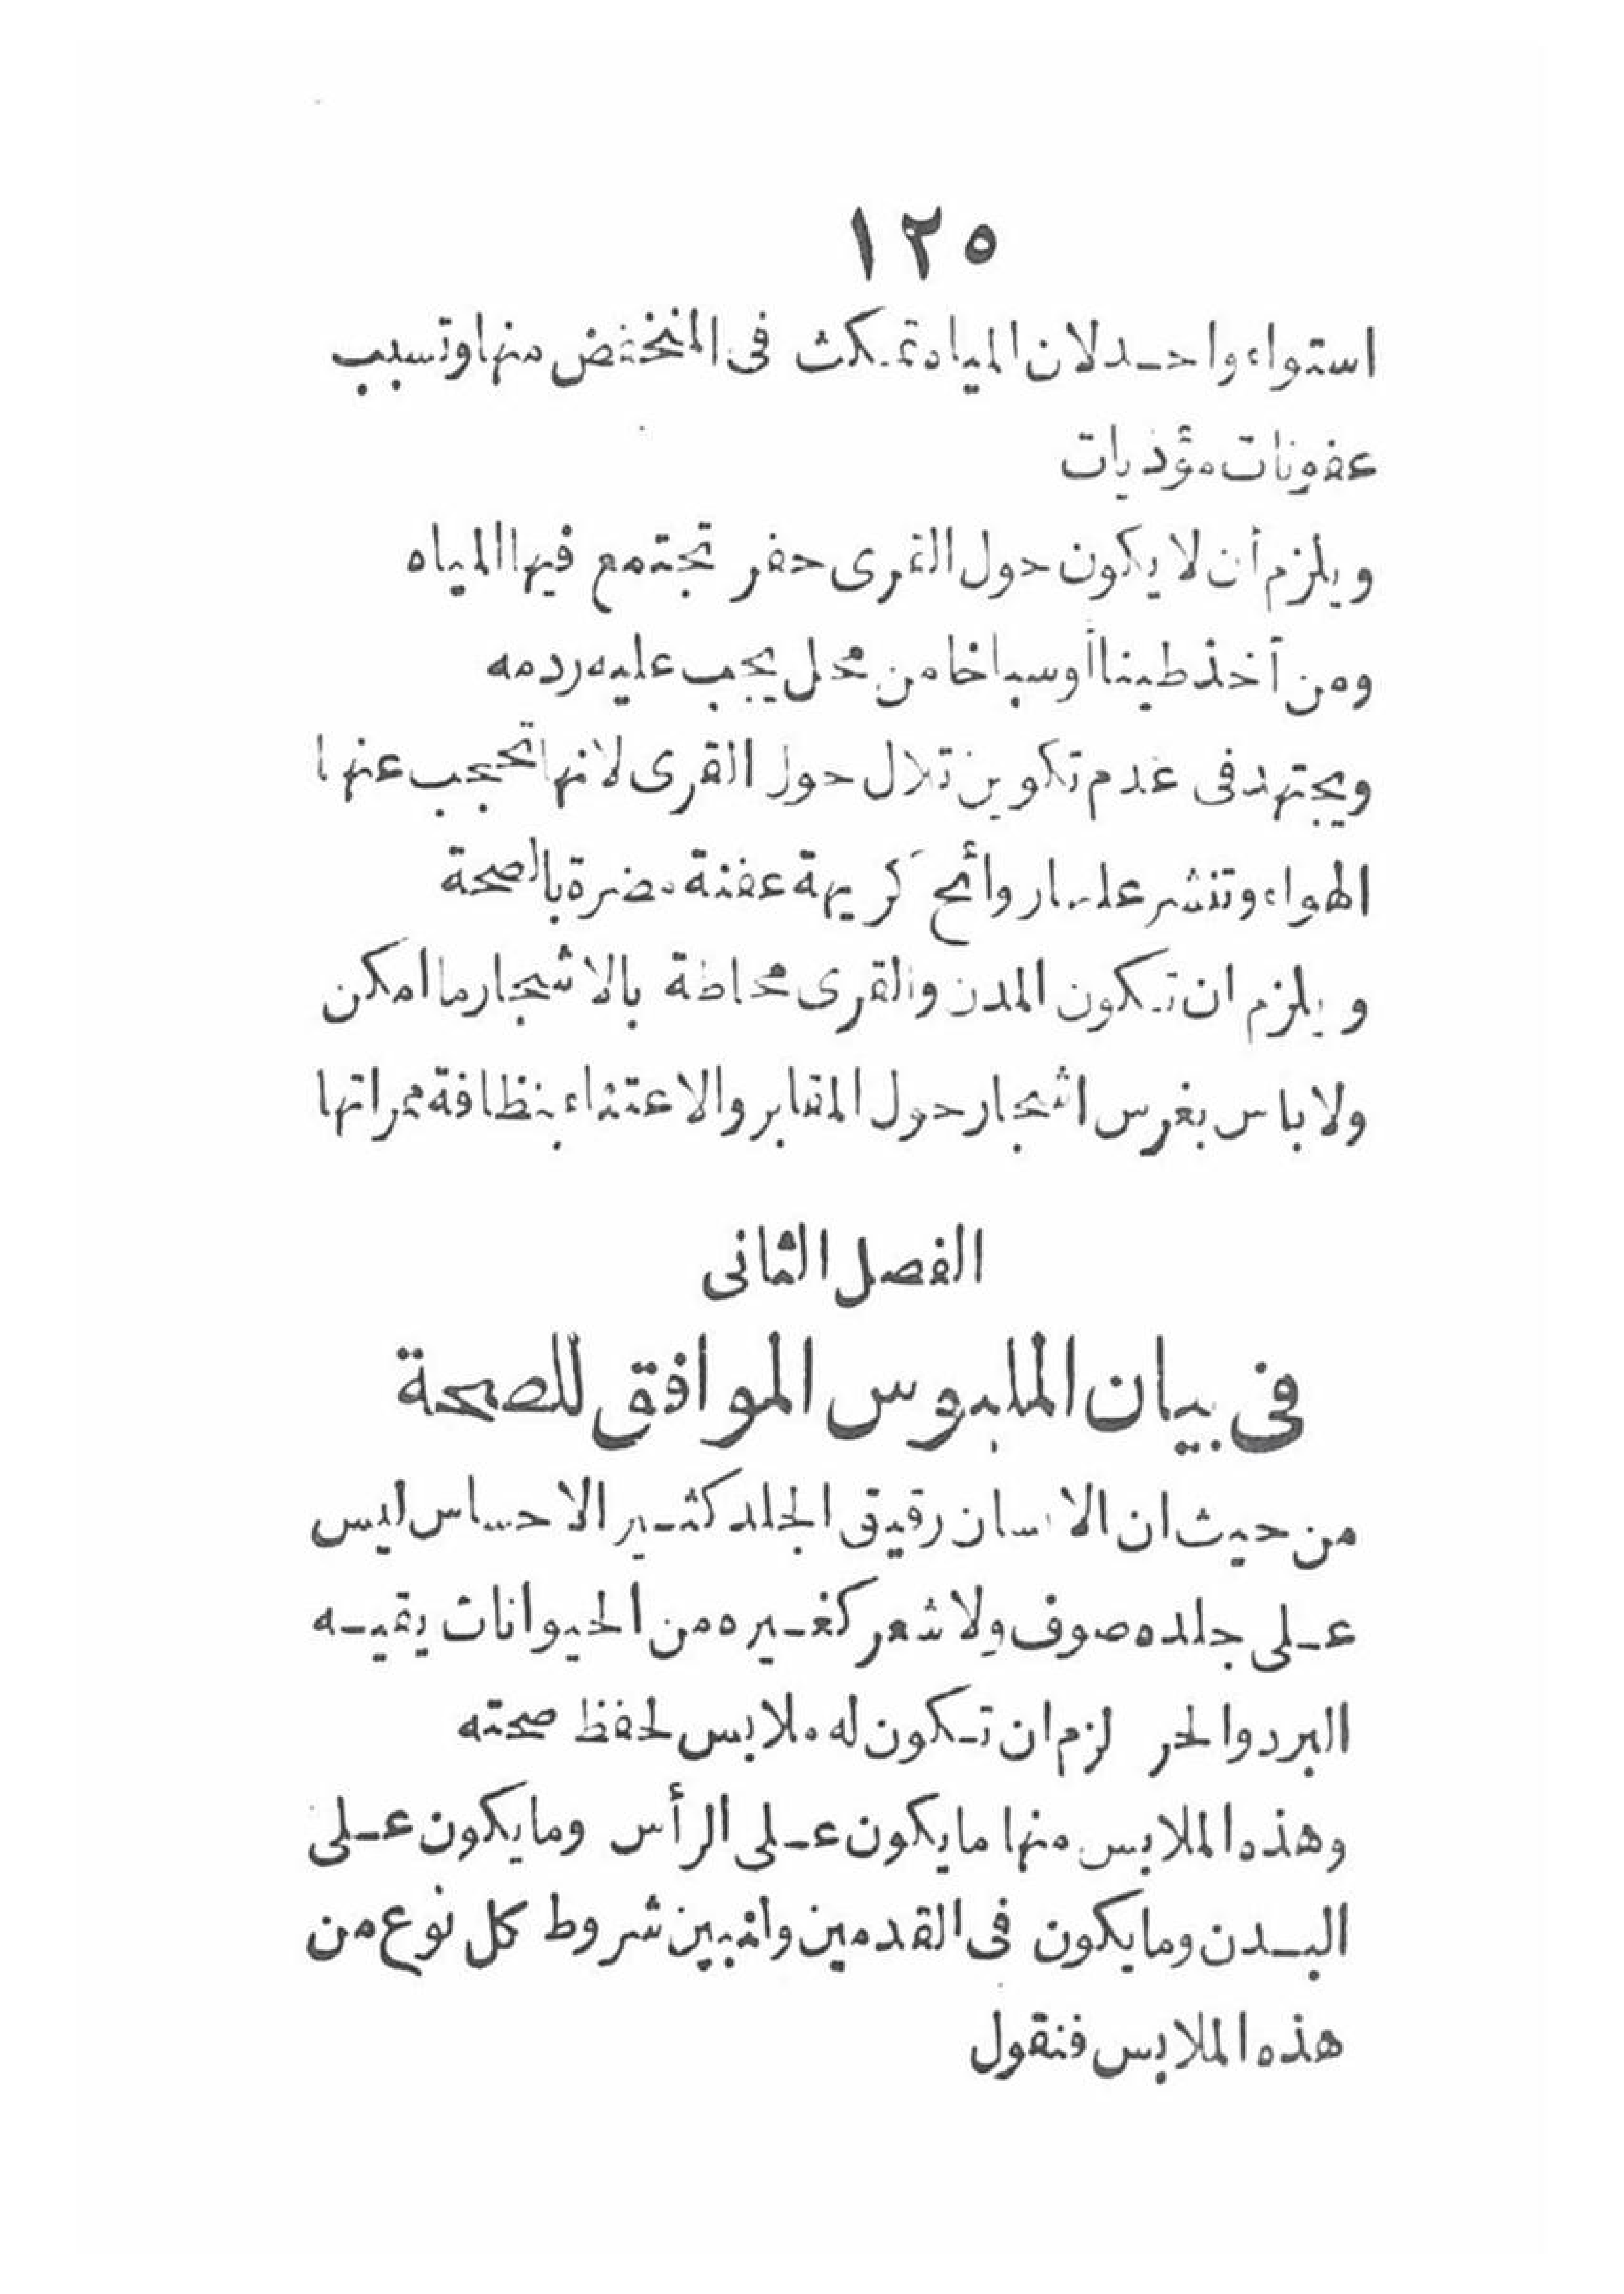 ١٢٥
استواء واحد لان المياه تمكث فى المنخفض منها وتسبب
عفونات مؤذيات
ويلزم أن لا يكون حول القرى حفر تجتمع فيها المياه
ومن أخذ طينا أو سباخا من محل يجب عليه ردمه
ويجتهد فى عدم تكوين تلال حول القرى لانها تحجب عنها
الهواء وتنشر عليها روائح كريهة عفنة مضرة بالصحة
ويلزم ان تكون المدن والقرى محاطة بالاشجار ما امكن
ولا باس بغرس اشجار حول المقابر والاعتناء بنظافة ممراتها
الفصل الثانى
فى بيان الملبوس الموافق للصحة
من حيث ان الانسان رقيق الجلد كثير الاحساس ليس
على جلده صوف ولا شعر كغيره من الحيوانات يقيه
البرد والحر لزم ان تكون له ملابس لحفظ صحته
وهذه الملابس منها ما يكون على الرأس وما يكون على
البدن وما يكون فى القدمين ولنبين شروط كل نوع من
هذه الملابس فنقول